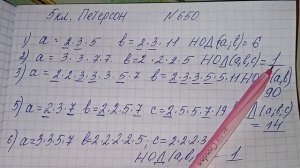 5кл. Петерсон №650
1) a = 2·3·5 b = 2·3·11 НОД(a,b)=6
2) a = 3·3·7·7 b = 2·2·2·5 НОД(a,b)=1
3) a = 2·2·3·3·3·5·7 b = 2·2·3·3·5·5·11 НОД(a,b)
90
5) a = 2·3·7 b = 2·2·5·7 c = 2·5·5·7·19 (a,b,c)
= 14
6) a = 3·3·5·7 b = 2·2·2·2·5, c = 2·2·2·3
НОД(a,b, 1